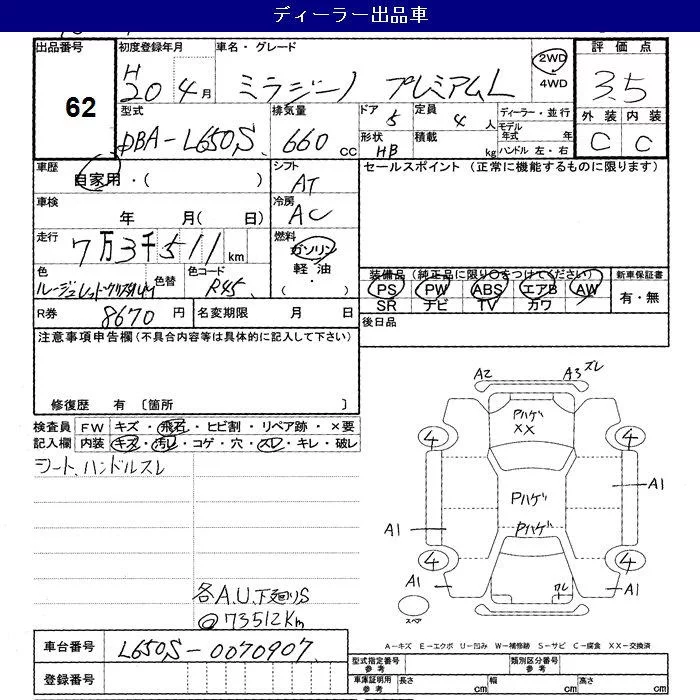 ディーラー出品車
出品番号 初度登録年月 車名・グレード 評価点
62
H20 4月 ミラジーノ プレミアムL 2WD 4WD 3.5
型式 排気量 ドア 5 定員 4人 ディーラー・並行 外装 内装
DBA-L650S 660cc 形状 HB 積載 kg モデル年式 年 ハンドル 左・右 C C
車歴 シフト セールスポイント(正常に機能するものに限ります)
自家用・( ) AT
車検 冷房
年 月( 日) AC
走行 燃料
7万3千511km ガソリン
軽油
・( )
色 色替 色コード 装備品(純正品に限り○をつけてください) 新車保証書
ルージュレッドクリスタルM R45 PS PW ABS エアB AW 有・無
SR ナビ TV カワ
R券 8670円 名変期限 月 日 後日品
注意事項申告欄(不具合内容等は具体的に記入して下さい)
修復歴 有 〔箇所 〕
検査員 FW キズ・飛石・ヒビ割・リペア跡・×要
記入欄 内装 キズ・汚レ・コゲ・穴・スレ・キレ・破レ
シート、ハンドルスレ
各A.U.下廻りS
@73512Km
A2 A3 ズレ
Pハゲ
XX
4 4
A1
Pハゲ
Pハゲ
A1
4 4
A1 ワレ A1
スペア
A-キズ E-エクボ U-凹み W-補修跡 S-サビ C-腐食 XX-交換済
車台番号 L650S-0070907
登録番号
型式指定番号 参考 類別区分番号 参考
車庫証明用 参考 長さ cm 幅 cm 高さ cm